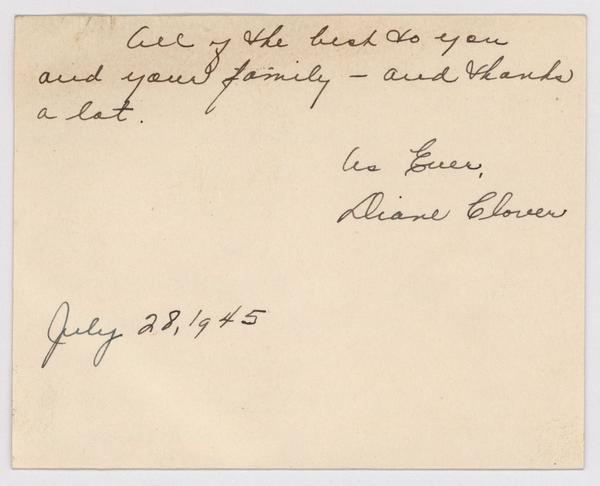 All of the best to you
and your family – and thanks
a lot.
As Ever,
Diane Clover
July 28, 1945